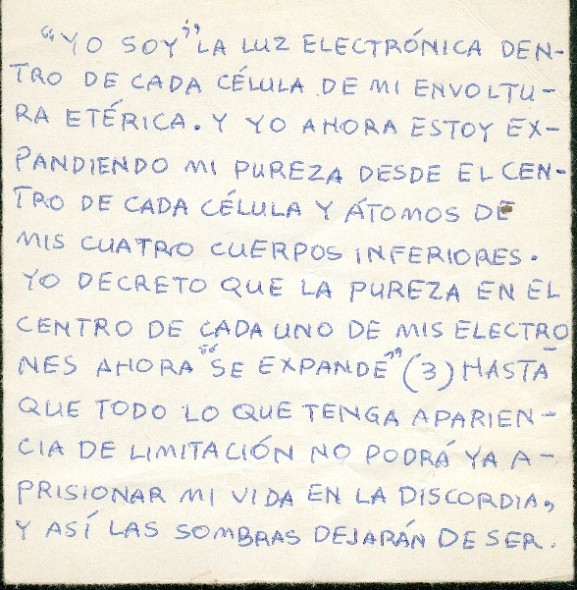 "YO SOY" LA LUZ ELECTRÓNICA DEN-
TRO DE CADA CÉLULA DE MI ENVOLTU-
RA ETÉRICA. Y YO AHORA ESTOY EX-
PANDIENDO MI PUREZA DESDE EL CEN-
TRO DE CADA CÉLULA Y ÁTOMOS DE
MIS CUATRO CUERPOS INFERIORES.
YO DECRETO QUE LA PUREZA EN EL
CENTRO DE CADA UNO DE MIS ELECTRO-
NES AHORA "SE EXPANDE" (3) HASTA
QUE TODO LO QUE TENGA APARIEN-
CIA DE LIMITACIÓN NO PODRÁ YA A-
PRISIONAR MI VIDA EN LA DISCORDIA,
Y ASÍ LAS SOMBRAS DEJARÁN DE SER.